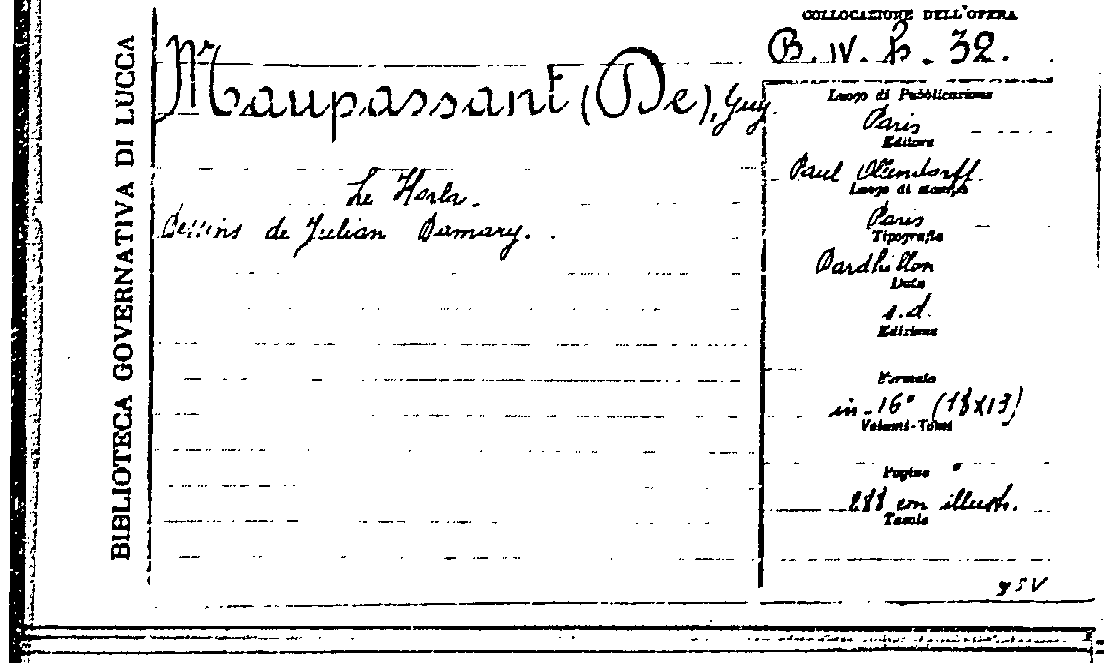 BIBLIOTECA GOVERNATIVA DI LUCCA
Maupassant (De), Guy
Le Horla.
Dessins de Julian Damary.
COLLOCAZIONE DELL'OPERA
B. IV. h. 32.
Luogo di Pubblicazione
Paris
Editore
Paul Ollendorff.
Luogo di stampa
Paris
Tipografia
Pardhillon
Data
s.d.
Edizione
Formato
in-16° (18x13)
Volumi-Tomi
Pagine
288 con illustr.
Tavole